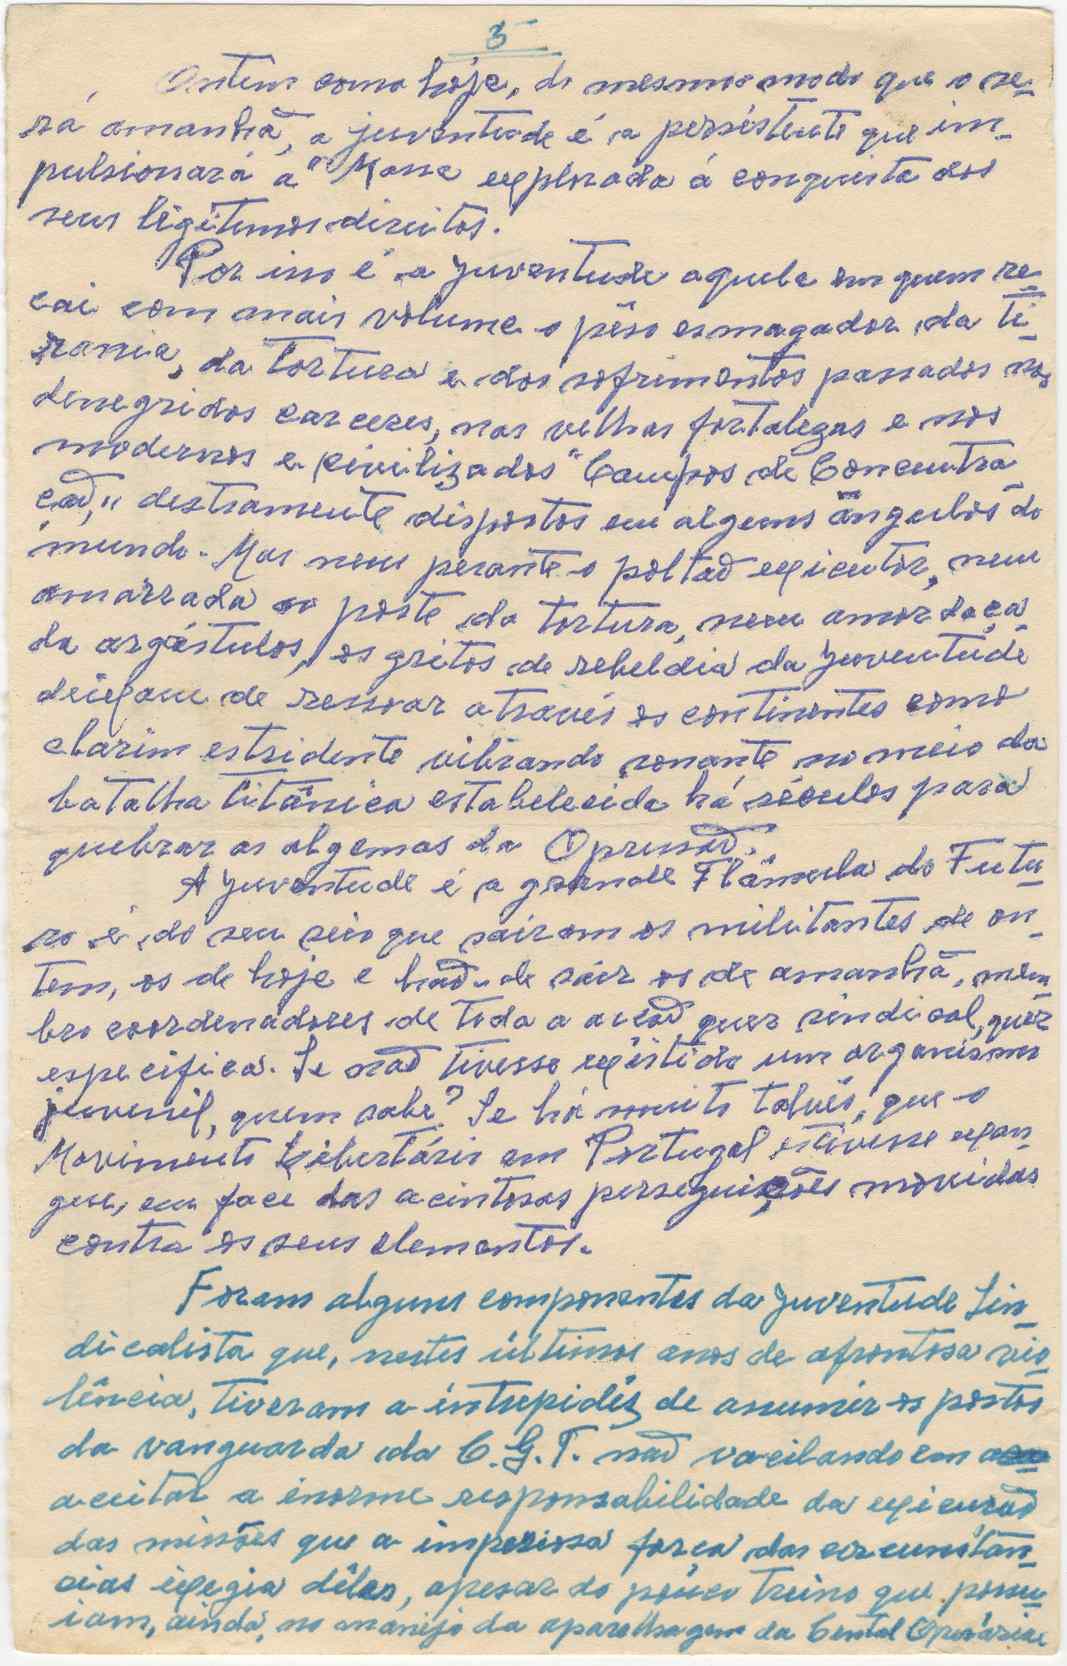 3
Ontem como hoje, do mesmo modo que o se-
rá amanhã, a juventude é a persistente que im-
pulsionará a "Massa explorada á conquista dos
seus legitimos direitos.
Por isso é a juventude aquela em quem re-
cai com mais volume o pêso esmagador da ti-
rania, da tortura e dos sofrimentos passados nos
denegridos carceres, nas velhas fortalezas e nos
modernos e civilizados "Campos de Concentra-
ção," destramente dispostos em alguns ângulos do
mundo. Mas nem perante o poltrão executor, nem
amarrada ao poste da tortura, nem amordaça-
da argástulos, os gritos de rebeldia da juventude
deixam de ressoar através os continentes como
clarim estridente vibrando sonante no meio da
batalha titânica estabelecida há séculos para
quebrar as algemas da Opressão.
A juventude é a grande Flâmula do Futu-
ro é do seu seio que sairam os militantes de on-
tem, os de hoje e hão-de sair os de amanhã, mem-
bro coordenadores de toda a acção quer sindical, quer
especifica. Se não tivesse existido um organismo
juvenil, quem sabe? Se há muito talvês, que o
Movimento Libertário em Portugal estivesse exan-
gue, em face das acintosas perseguições movidas
contra os seus elementos.
Foram alguns componentes da juventude Sin-
dicalista que, nestes últimos anos de afrontosa vio-
lência, tiveram a intrepidês de assumir os postos
da vanguarda da C.G.T. não vacilando em
aceitar a enorme responsabilidade da execução
das missões que a imperiosa força das circunstân-
cias exegia dêles, apesar do pouco treino que possu-
iam, ainda, no manejo da aparelhagem da Cental Operária e